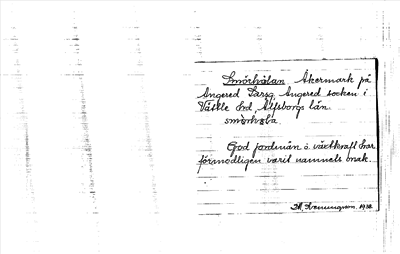 Smörhålan Åkermark på
Angered Angered socken i
Vättle hd, Älfsborgs län.
smörhåla
God jordmån o. växtkraft
förmodligen varit namnets
1930.